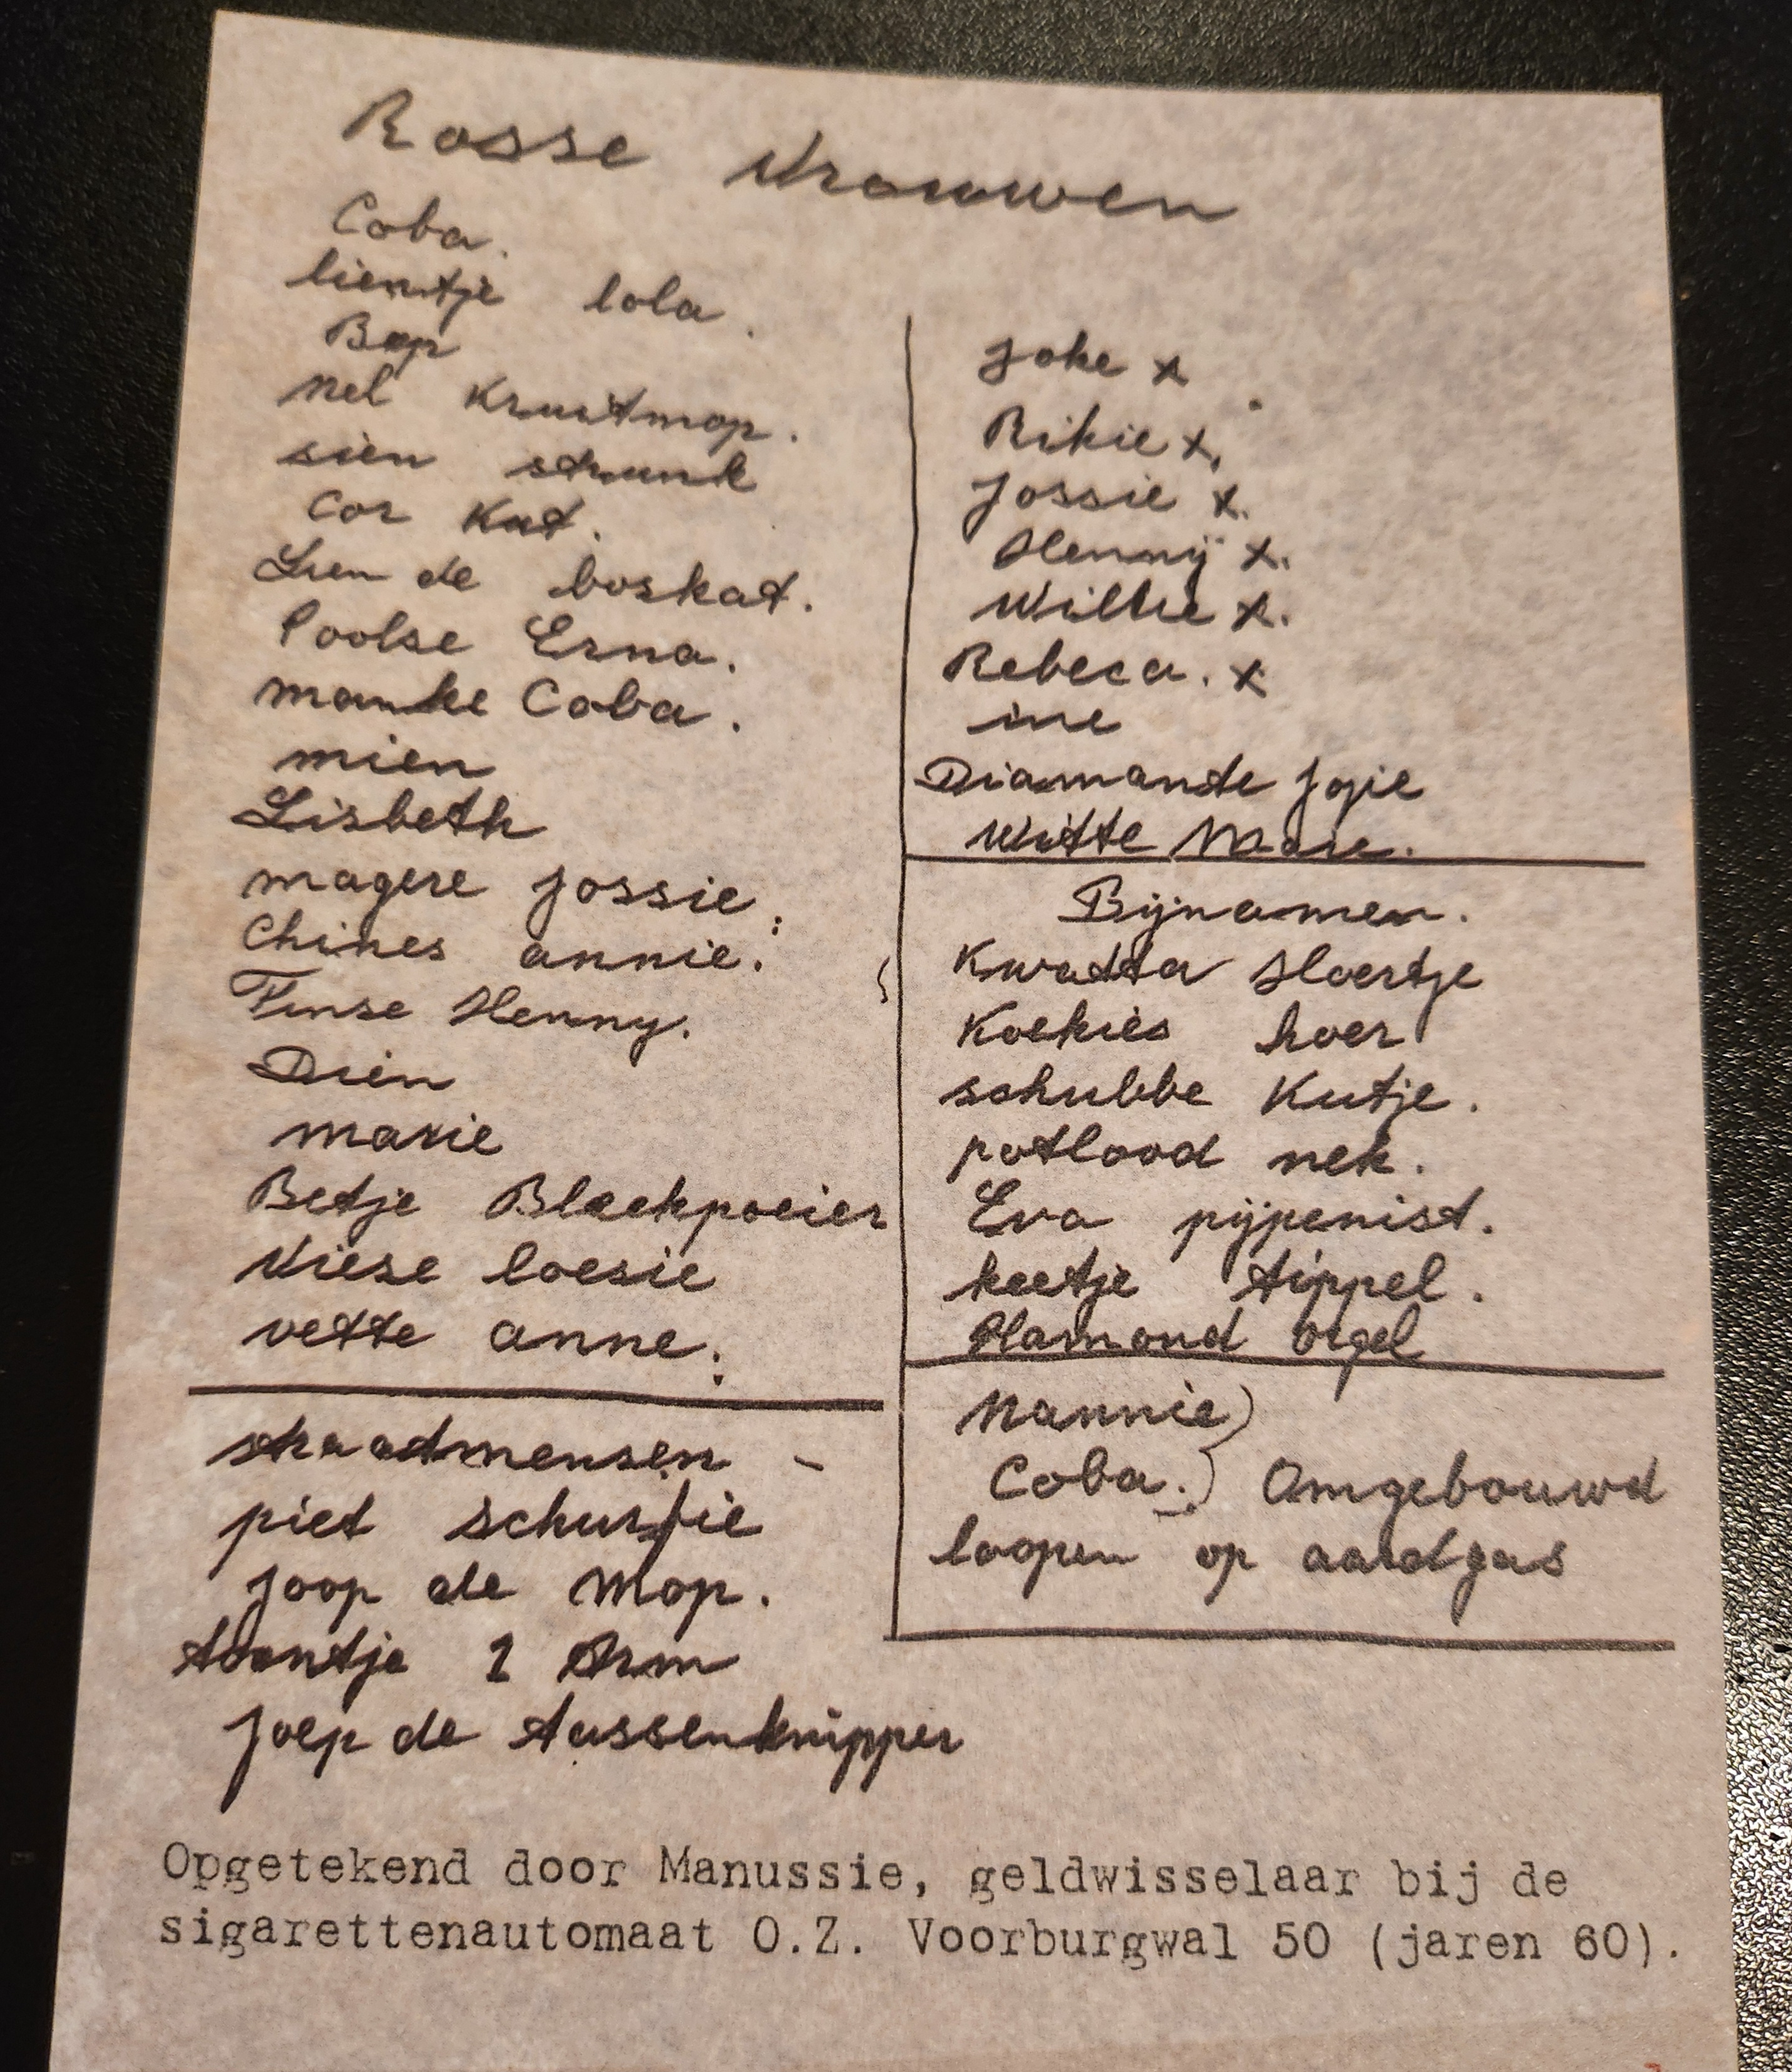 Rosse Vrouwen
Coba.
lientje lola.
Bep
nel Kruitmop.
sien strunk
Cor Kat.
Lien de boskat.
Poolse Erna.
manke Coba.
mien
Lisbeth
magere Jossie.
Chines annie.
Finse Henny.
Dien
marie
Betje Bleekpoeier
Viese loesie
vette anne.
straatmensen -
piet schurfie
Joop de Mop.
toontje 1 Arm
Joep de tassenknipper
Joke x
Rikie x.
Jossie x.
Henny x.
Willie x.
Rebeca. x
ine
Diamante Jopie
Witte Marie.
Bijnamen.
Kwatta Hoertje
Koekies hoer
schubbe Kutje.
potlood nek.
Eva pijpenist.
keetje tippel.
Hamond orgel
Nannie)
Coba.) Omgebouwd
loopen op aardgas
Opgetekend door Manussie, geldwisselaar bij de
sigarettenautomaat O.Z. Voorburgwal 50 (jaren 60).